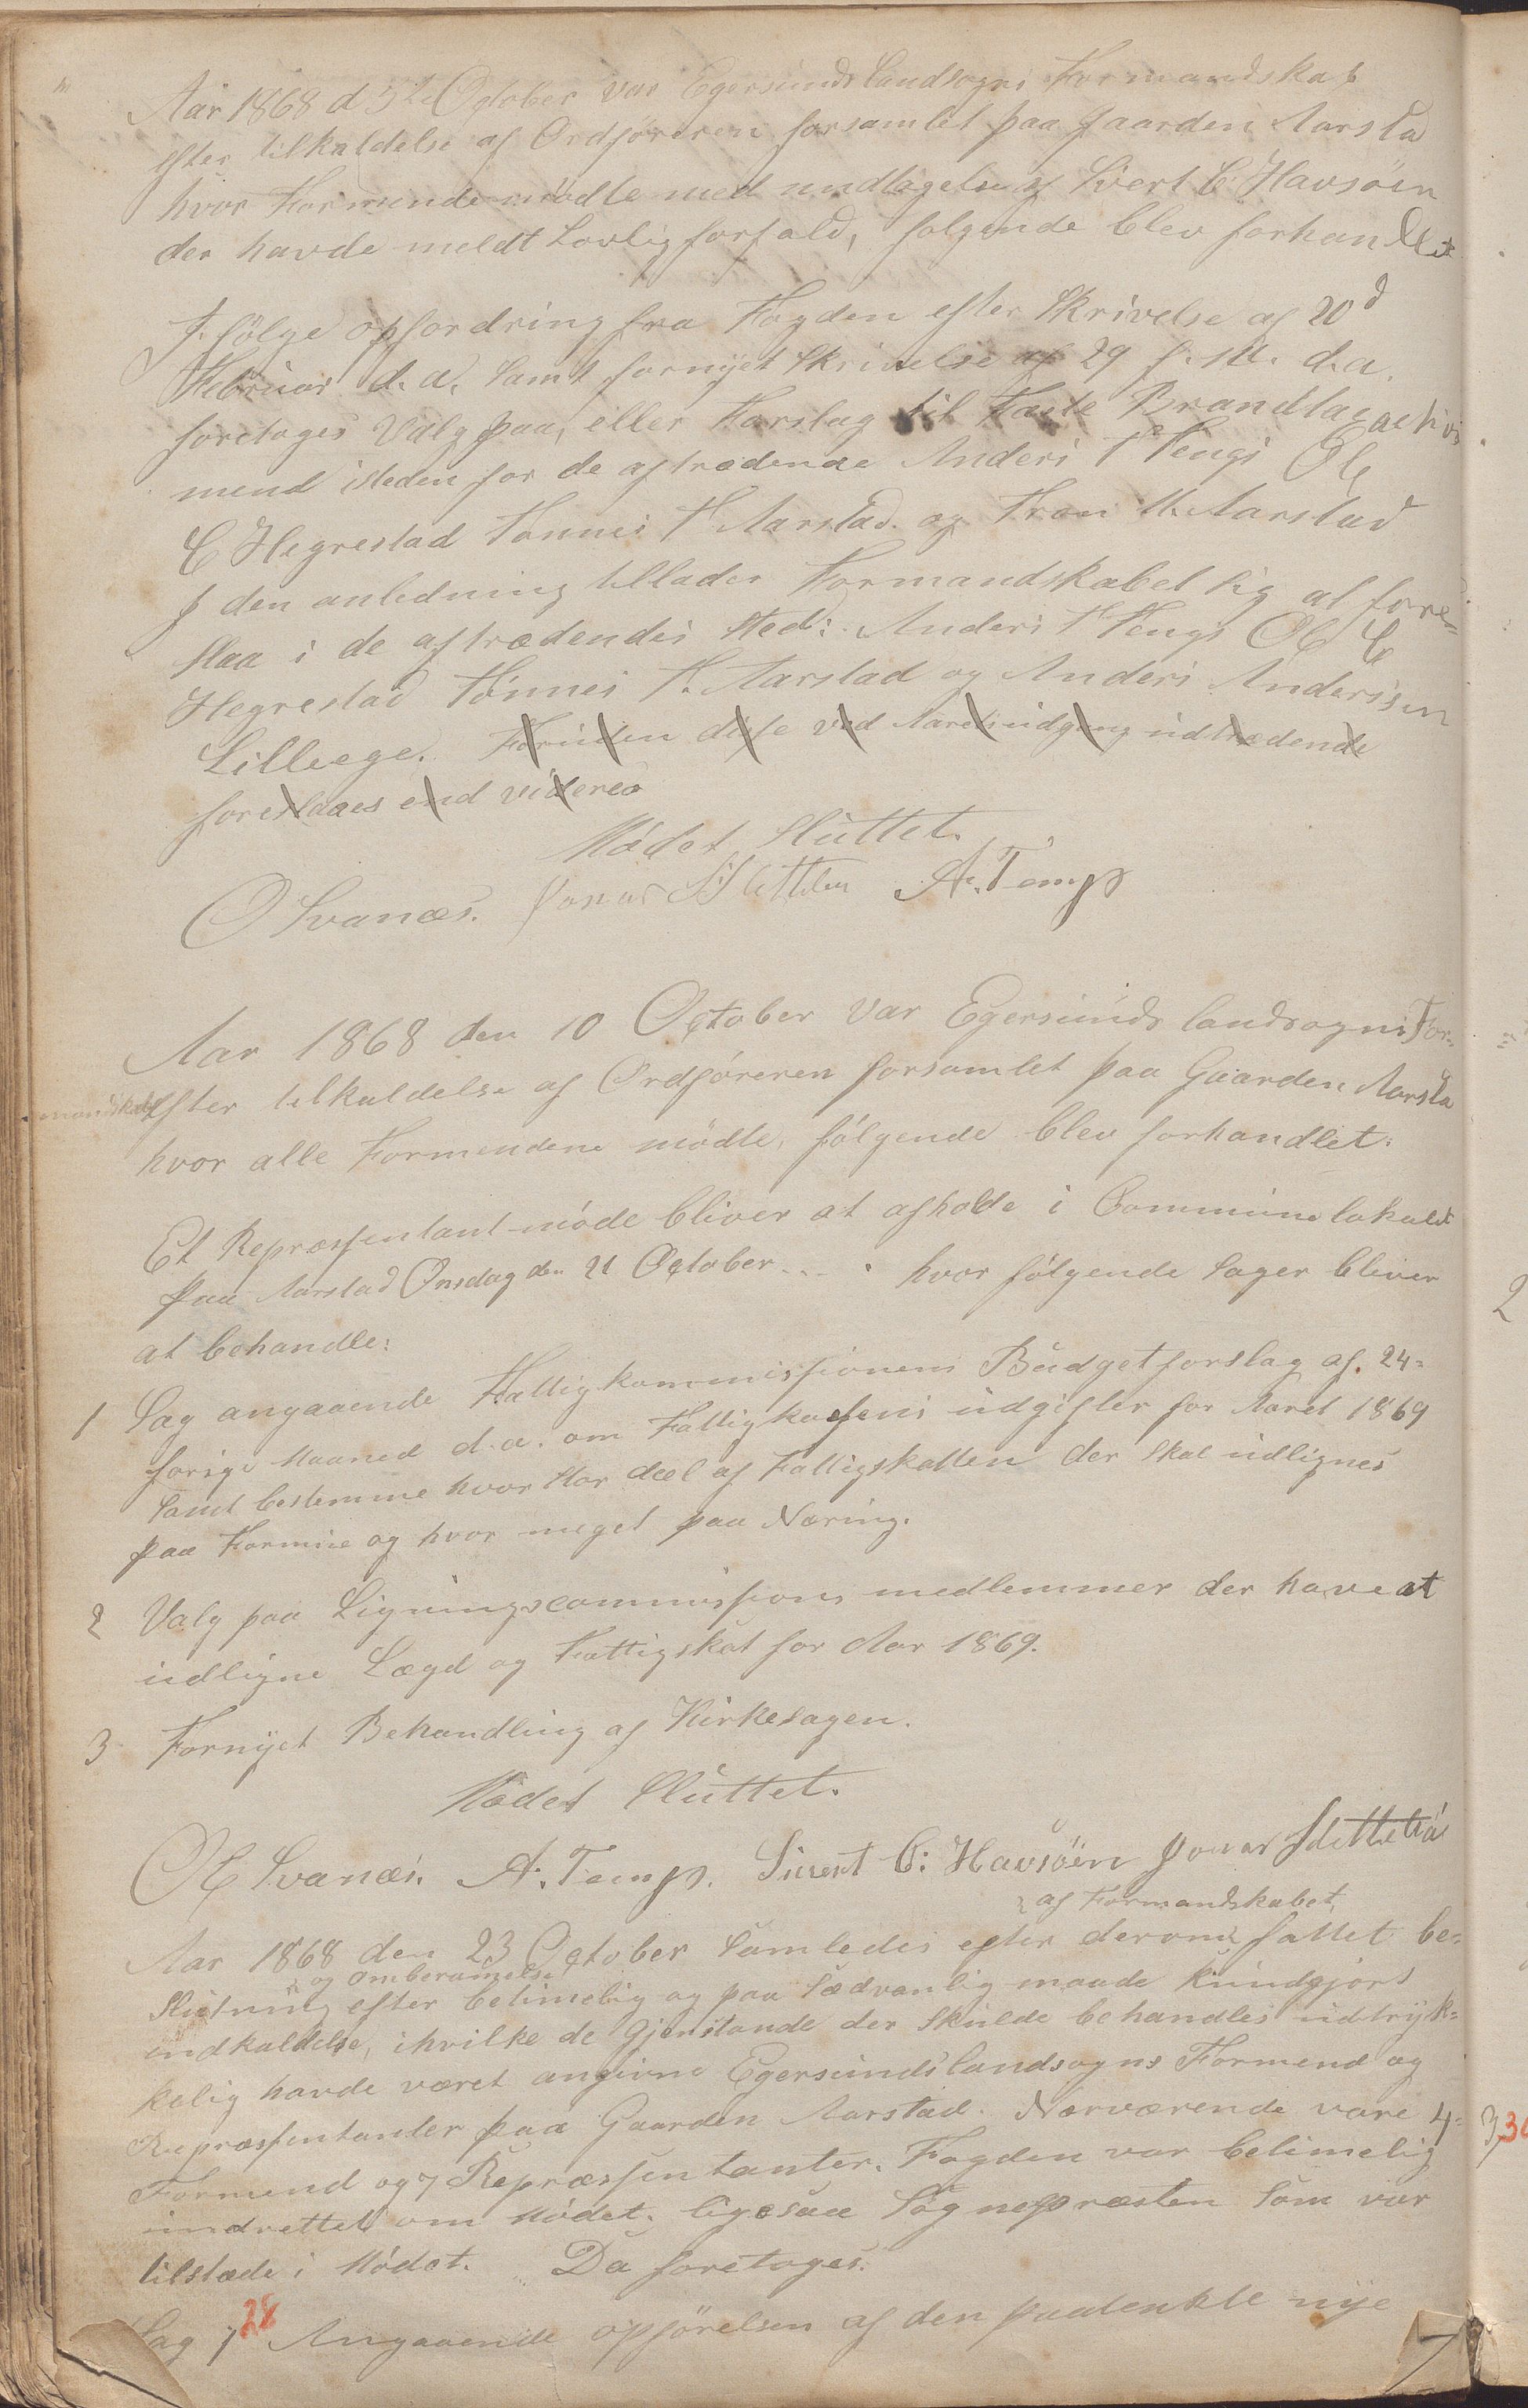 Aar 1868 d 5te October var Egersunds landsogns Formandskab
efter tilkaldelse af Ordføreren forsamlet paa gaarden Aarsta
hvor Formendene mödte med undtagelse af Sivert C. Havsöen
der havde meldt Lovlig forfald, folgende blev forhandlet
I fölge opfordring fra Fogden efter Skrivelse af 20d
Februar d. a. samt fornyet Skrivelse af 29 f. M. d. a.
foretoges Valg paa, eller Forslag til Faste Brandtaxations
mend isteden for de aftrædende Anders T Tengs Ole
C Hegrestad Tønnes T Aarstad og Tron M. Aarstad
I den anledning tillader Formandskabet sig at fore=
slaa i de aftrædendes Sted: Anders T Tengs Ole C
Hegrestad Tönnes T. Aarstad og Anders Anderssen
Lilleege. Foruden disse ved Aarets udgang udtrædende
foreslaaes end videre
Mödet Sluttet.
O Svanæs. Jonas Slettebø A. Tengs
Aar 1868 den 10 October var Egersunds landsogns For=
mandskab efter tilkaldelse af Ordføreren forsamlet paa Gaarden Aarsta
hvor alle Formendene mödte, fölgende blev forhandlet:
Et Repræssentantmöde bliver at afholde i Communelokalet
paa Aarstad Onsdag den 21 October . . . . hvor fölgende Sager bliver
at behandle:
1 Sag angaaende Fattigkommissionens Budgetforslag af. 24=
forige Maaned d. a. om Fattigkassens udgifter for Aaret 1869
samt bestemme hvor Stor deel af Fattigskatten der Skal udlignes
paa Formue og hvor meget paa Næring.
2 Valg paa Ligningscommissions medlemmer der have at
udligne Lægd og Fattigskat for Aar 1869.
3 Fornyet Behandling af Kirkesagen.
Mödet Sluttet.
O Svanæs. A. Tengs. Sivert C: Havsöen Jonas Slettebö
af Formandskabet,
Aar 1868 den 23 October Samledes efter derom fattet be=
og omberammelse
slutning efter betimelig og paa Sædvanlig maade kundgjort
indkaldelse, i hvilke de Gjenstande der Skulde behandles udtryk=
kelig havde været angivne Egersunds landsogns Formend og
Repræssentanter paa Gaarden Aarstad. Nærværende vare 4=
Formend og 7 Repræssentanter. Fogden var betimelig
undrettet om Mödet. ligesaa Sognepræsten Som var
tilstæde i Mödet. Da foretoges.
28
Sag 1 Angaaende opförelsen af den paatenkte nye